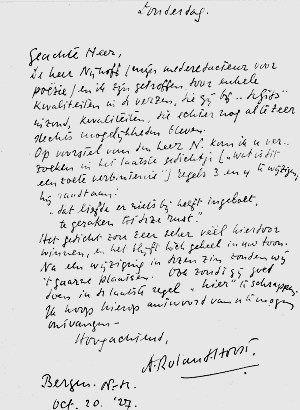 Donderdag.
Geachte Heer,
De heer Nijhoff (mijn mederedacteur voor
poëzie) en ik zijn getroffen door enkele
kwaliteiten in de verzen, die gij bij "de Gids"
inzond, kwaliteiten, die echter nog al te zeer
slechts mogelijkheden bleven.
Op voorstel van den heer N. kom ik u ver-
zoeken in het laatste gedichtje ("wat is dit
een zoete verbintenis") regels 3 en 4 te wijzigen,
bij
"dat liefde er niets bij heeft ingeboet,
te geraken tot deze rust."
Het gedicht zou zeer zeker veel hierdoor
winnen, en het blijft toch geheel in uw toon.
Na een wijziging in dezen zin zouden wij
't gaarne plaatsen. Ook zoudt gij goed
doen in de laatste regel "hier" te schrappen.
Ik hoop hierop antwoord van u te mogen
ontvangen.
Hoogachtend,
A. Roland Holst.
Bergen. N-H.
Oct. 20. '27.